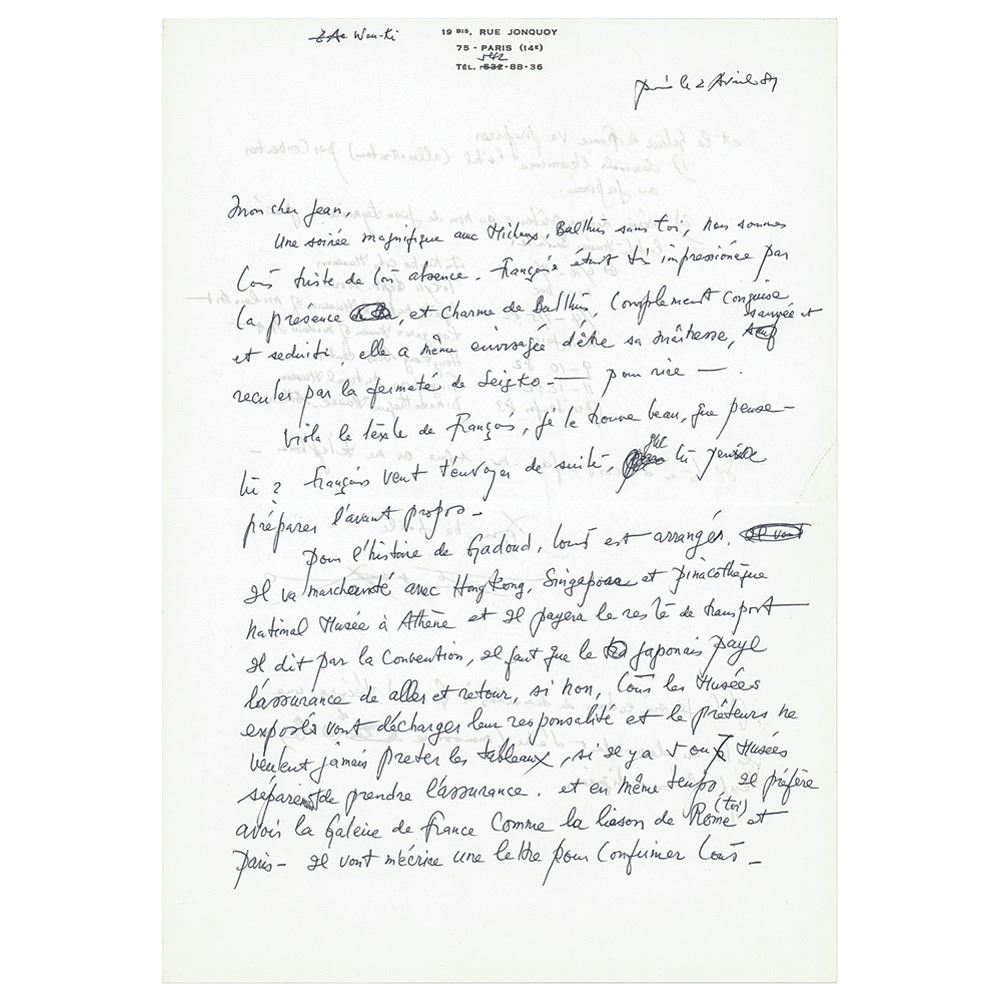 ZAo Wou-Ki
19 BIS, RUE JONQUOY
75 - PARIS (14E)
542
TÉL. 532-88-36
le 2 Avril 81
Mon cher Jean,
Une soirée magnifique avec Michaux, Balthus sans toi, nous sommes
tous triste de ton absence. Françoise était très impressionée par
la présence, et charme de Balthus, Complement conquise
et seduiti, elle a même envisagée d'être sa maîtresse, sauvée et
reculer par la fermeté de Setzko — pour rire — .
Viola le texte de François, je le trouve beau, que pense-
tu ? François veut t'envoyer de suite, que tu puisse
préparer l'avant propos -
pour l'histoire de Gadoud, tout est arrangés.
Il va avec HongKong, Singapour et pinacothèque
National Musée à Athène et Il payera le reste de transport
Il dit par la Convention, il faut que le Japonais paye
l'assurance de aller et retour, si non, tous les Musées
exposés vont décharger leur responsalité et le prêteurs ne
veulent jamais preter les tableaux, si il y a 5 ou 7 Musées
séparent de prendre l'assurance. et en même temps, Il préfère
avoir la Galerie de France Comme la liason de Rome (toi) et
Paris - Il vont m'écrire une lettre pour Confirmer tout -